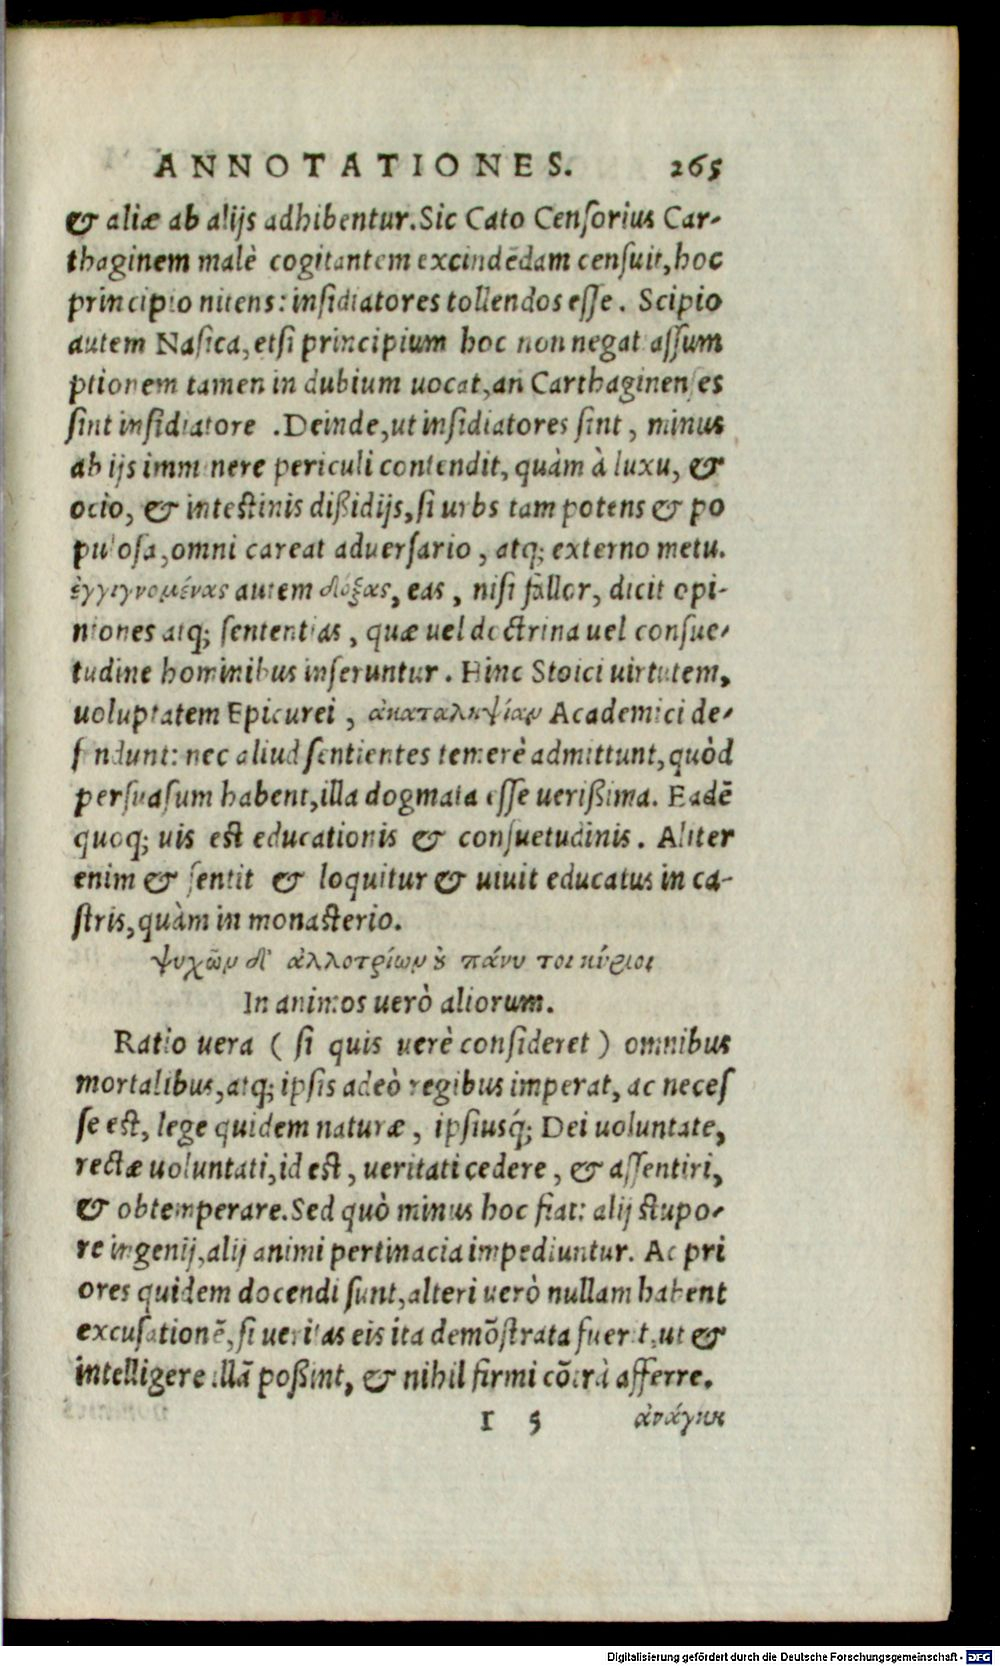 ANNOTATIONES. 265
& aliæ ab alijs adhibentur. Sic Cato Censorius Car-
thaginem malè cogitantem excindēdam censuit, hoc
principio nitens: insidiatores tollendos esse. Scipio
autem Nasica, etsi principium hoc non negat assum
ptionem tamen in dubium uocat, an Carthaginenses
sint insidiatore . Deinde, ut insidiatores sint, minus
ab ijs imminere periculi contendit, quàm à luxu, &
ocio, & intestinis dißidijs, si urbs tam potens & po
pulosa, omni careat aduersario, atq; externo metu.
ἐγγιγνομένας autem δόξας, eas, nisi fallor, dicit opi-
niones atq; sententias, quæ uel doctrina uel consue-
tudine hominibus inseruntur. Hinc Stoici uirtutem,
uoluptatem Epicurei, ἀκαταληψίαν Academici de-
fendunt: nec aliud sentientes temerè admittunt, quòd
persuasum habent, illa dogmata esse uerißima. Eadē
quoq; uis est educationis & consuetudinis. Aliter
enim & sentit & loquitur & uiuit educatus in ca-
stris, quàm in monasterio.
ψυχῶν δ' ἀλλοτρίων ȣ πάνυ τοι κύριοι
In animos uerò aliorum.
Ratio uera ( si quis uerè consideret ) omnibus
mortalibus, atq; ipsis adeò regibus imperat, ac neces
se est, lege quidem naturæ, ipsiusq́; Dei uoluntate,
rectæ uoluntati, id est, ueritati cedere, & assentiri,
& obtemperare. Sed quò minus hoc fiat: alij stupo-
re ingenij, alij animi pertinacia impediuntur. Ac pri
ores quidem docendi sunt, alteri uerò nullam habent
excusationē, si ueritas eis ita demōstrata fuerit, ut &
intelligere illā poßint, & nihil firmi cōtrà afferre.
r 5 ἀνάγκη
Digitalisierung gefördert durch die Deutsche Forschungsgemeinschaft - DFG